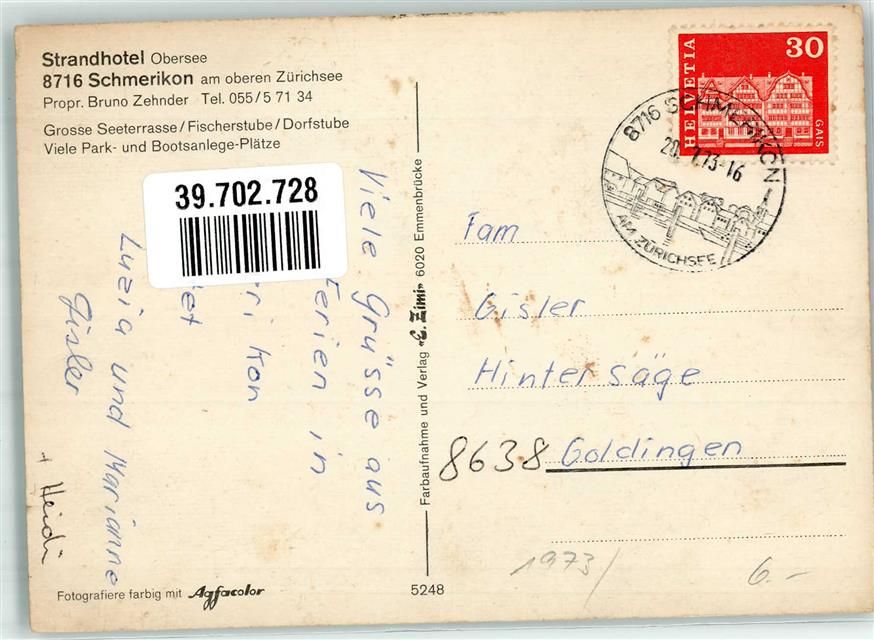 Strandhotel Obersee
8716 Schmerikon am oberen Zürichsee
Propr. Bruno Zehnder Tel. 055/5 71 34
Grosse Seeterrasse/Fischerstube/Dorfstube
Viele Park- und Bootsanlege-Plätze
39.702.728
Viele Grüsse aus
Ferien in
ri kon
et
Luzia und Marianne
Gisler
+ Heidi
Fotografiere farbig mit Agfacolor
Farbaufnahme und Verlag «E. Zimi» 6020 Emmenbrücke
5248
HELVETIA
30
GAIS
8716 SCHMERIKON
20. 7.73-16
AM ZÜRICHSEE
Fam
Gisler
Hintersäge
8638 Goldingen
1973/
6.-